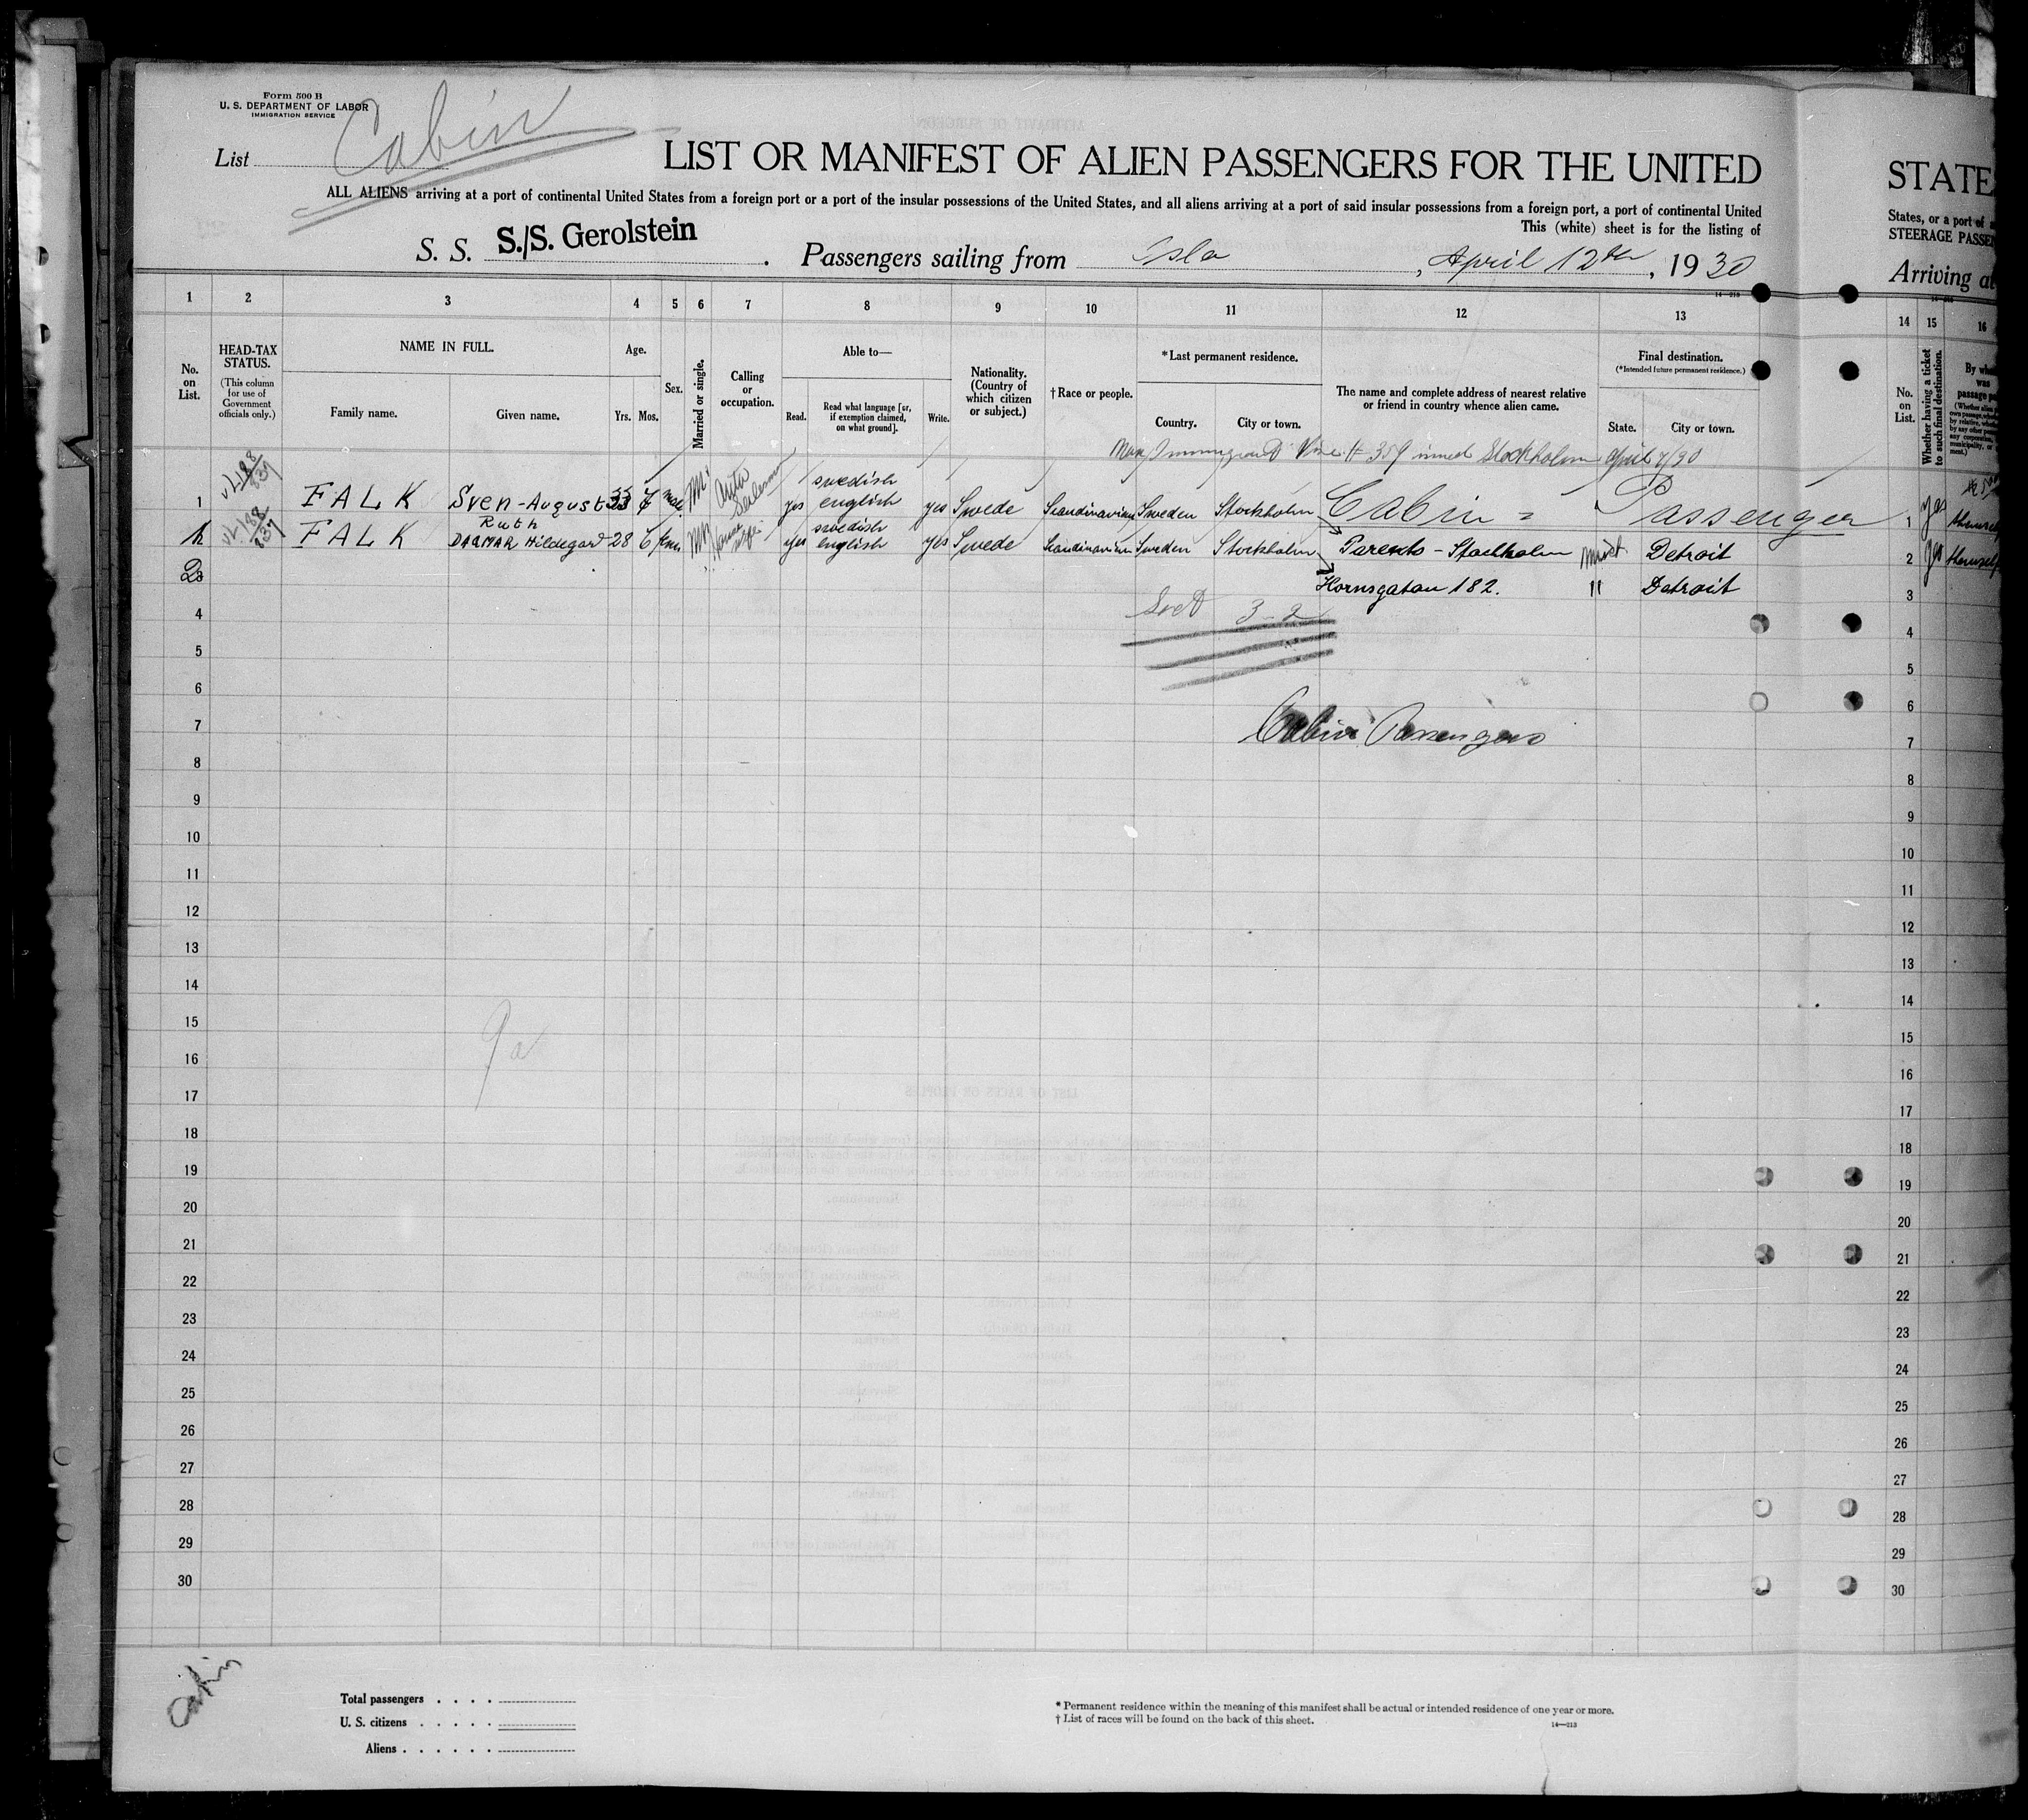 Form 500 B
U. S. DEPARTMENT OF LABOR
IMMIGRATION SERVICE
Cabin
List
LIST OR MANIFEST OF ALIEN PASSENGERS FOR THE UNITED
STATE
ALL ALIENS arriving at a port of continental United States from a foreign port or a port of the insular possessions of the United States, and all aliens arriving at a port of said insular possessions from a foreign port, a port of continental United
States, or a port of
This (white) sheet is for the listing of
STEERAGE PASSEN
S. S. S./S. Gerolstein. Passengers sailing from Oslo, April 12th, 1930
Arriving at
1 2 3 4 5 6 7 8 9 10 11 12 13 14 15 16
No. on List.
HEAD-TAX STATUS.
(This column for use of Government officials only.)
NAME IN FULL.
Family name.
Given name.
Age.
Yrs. Mos.
Sex.
Married or single.
Calling or occupation.
Able to—
Read.
Read what language [or, if exemption claimed, on what ground].
Write.
Nationality. (Country of which citizen or subject.)
† Race or people.
* Last permanent residence.
Country.
City or town.
The name and complete address of nearest relative or friend in country whence alien came.
Final destination.
(* Intended future permanent residence.)
State.
City or town.
No. on List.
Whether having a ticket to such final destination.
By
was
passage
Immigrant Visa # 359 issued Stockholm April 7/30
1 FALK Sven-August 33 7 Male M Auto yes swedish english yes Swede Scandinavian Sweden Stockholm Cabin = Passenger 1 yes
FALK Ruth DAGMAR Hildegard 28 6 fem M House wife yes swedish english yes Swede Scandinavian Sweden Stockholm Parents - Stockholm Detroit 2 yes
2
Hornsgatan 182. " Detroit 3
4 3-2 4
5 5
6 6
7 Cabin Passengers 7
8 8
9 9
10 10
11 11
12 12
13 13
14 14
15 9a 15
16 16
17 17
18 18
19 19
20 20
21 21
22 22
23 23
24 24
25 25
26 26
27 27
28 28
29 29
30 30
Cabin
Total passengers . . . .
U. S. citizens . . . . .
Aliens . . . . . .
* Permanent residence within the meaning of this manifest shall be actual or intended residence of one year or more.
† List of races will be found on the back of this sheet.
14—213